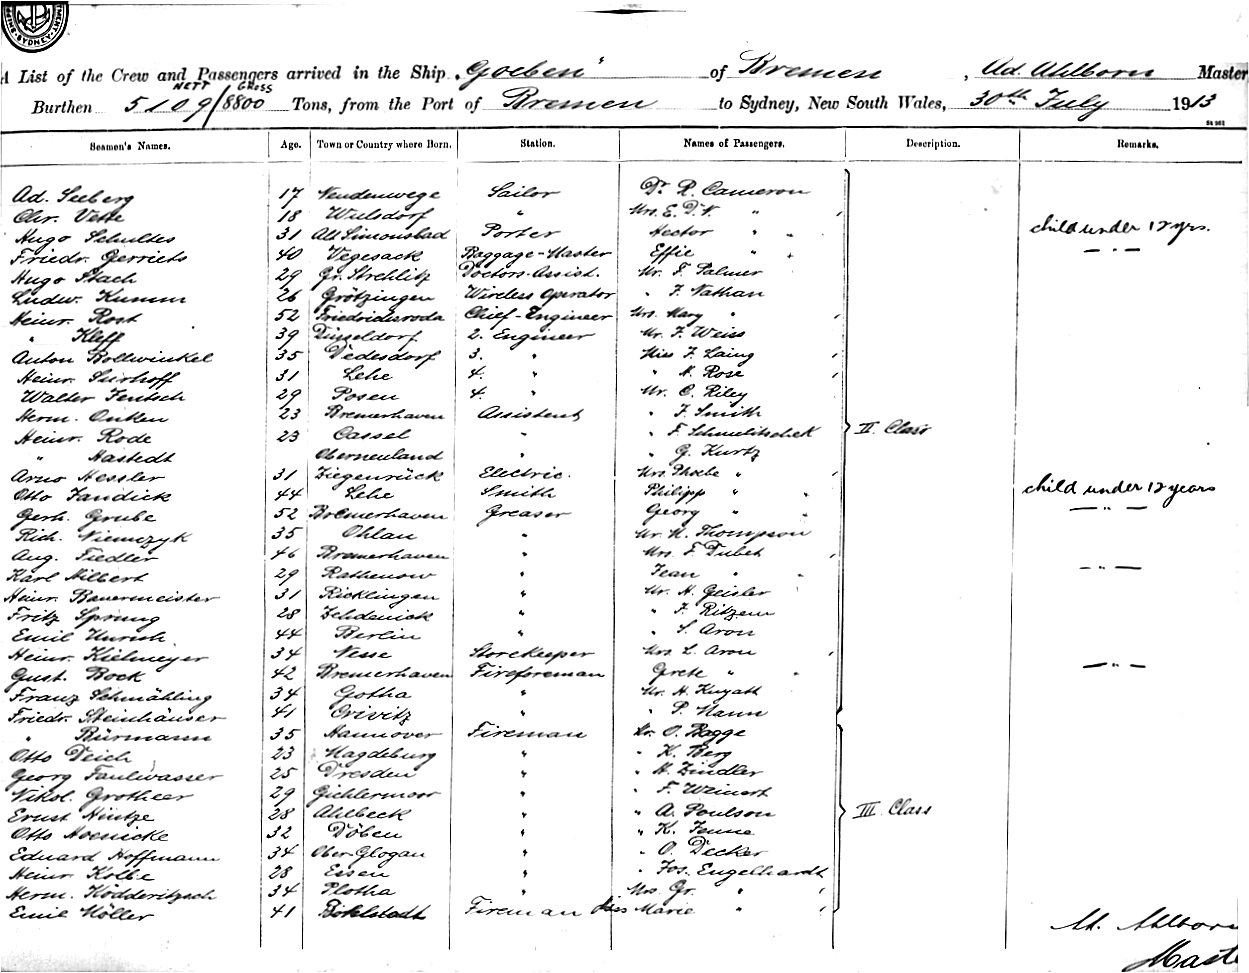 SYDNEY
A List of the Crew and Passengers arrived in the Ship "Goeben" of Bremen, Ad. Ahlborn Master
NETT GROSS
Burthen 5109/8800 Tons, from the Port of Bremen to Sydney, New South Wales, 30th July 1913
St 961
Seamen's Names. Age. Town or Country where Born. Station. Names of Passengers. Description. Remarks.
Ad. Seeberg 17 Neudenwege Sailor Dr. R. Cameron
Chr. Vette 18 Wulsdorf " Mrs. E. D. V. "
Hugo Schultes 31 Alt Simonsbad Porter Hector " " child under 12 yrs.
Friedr. Gerriets 40 Vegesack Baggage-Master Effie " " — " —
Hugo Stach 29 Gr. Strehlitz Doctors-Assist. Mr. F. Palmer
Ludw. Kumm 26 Grötzingen Wireless Operator " F. Nathan
Heinr. Rost 52 Friedrichsroda Chief-Engineer Mrs. Mary "
" Kleff 39 Düsseldorf 2. Engineer Mr. F. Weiss
Anton Bollwinkel 35 Dedesdorf 3. " Miss F. Laing
Heinr. Suhoff 31 Lehe 4. " " N. Rose
Walter Jentsch 29 Posen 4. " Mr. C. Riley
Herm. Onken 23 Bremerhaven Assistent " F. Smith
Heinr. Rode 23 Cassel " " F. Schmelitschek II. Class
" Hastedt Oberneuland " " G. Kurtz
Arno Hessler 31 Ziegenrück Electric. Mrs. Phoebe "
Otto Jandick 44 Lehe Smith Philipp " " child under 12 years
Gerh. Grube 52 Bremerhaven Greaser Georg " " — " —
Rich. Niemczyk 35 Ohlau " Mr. N. Thompson
Aug. Fiedler 46 Bremerhaven " Mrs. F. Dubet
Karl Hilbert 29 Rathenow " Jean " " — " —
Heinr. Bauermeister 31 Ricklingen " Mr. H. Geisler
Fritz Sprung 28 Zehdenick " " F. Ritzem
Emil 44 Berlin " " S. Aron
Heinr. Kielmeyer 34 Nesse Storekeeper Mrs. L. Aron
Gust. Bock 42 Bremerhaven Fireforeman Grete " " — " —
Franz Schmähling 34 Gotha " Mr. H. Knyatt
Friedr. Steinhäuser 41 Crivitz " " P. Mann
" Bürmann 35 Hannover Fireman Mr. O. Bagge
Otto Deich 23 Magdeburg " " K. Berg
Georg Faulwasser 25 Dresden " " H. Zindler
Nikol. Grotheer 29 Gichlermoor " " F. Weinert
Ernst Hintze 28 Ahlbeck " " A. Poulson III. Class
Otto Hoenicke 32 Döben " " K. Fenne
Eduard Hoffmann 34 Ober-Glogau " " O. Decker
Heinr. Kolbe 28 Essen " " Jos. Engelhardt
Herm. Ködderitzsch 34 Plotha " Mrs. Gr. "
Emil Möller 41 Fireman Miss Marie "
Ad. Ahlborn
Master